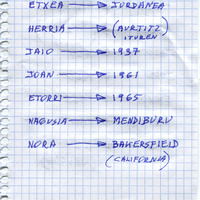 ETXEA → JORDANEA
HERRIA → (AURTITZ
ITUREN)
JAIO → 1937
JOAN → 1961
ETORRI → 1965
NAGUSIA → MENDIBURU
NORA → BAKERSFIELD
(CALIFORNIA)